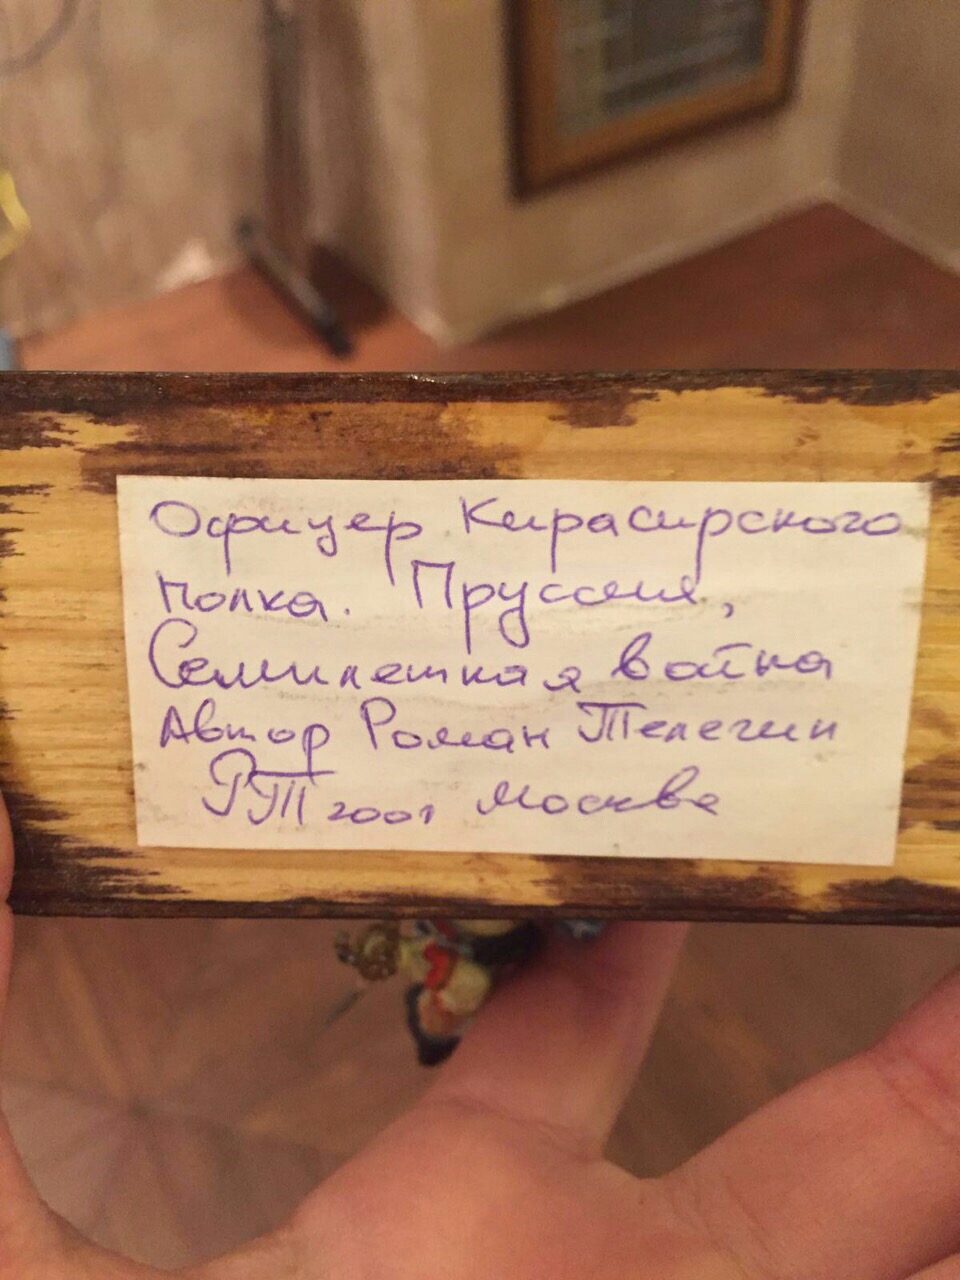 Офицер Кирасирского
полка. Пруссия,
Семилетняя война
Автор Роман Телегин
РТ 2001 Москва